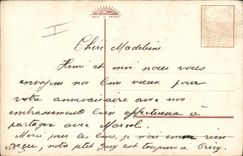 I
Chère Madeleine
Henri et moi nous vous
envoyons nos bons vœux pour
votre anniversaire avec nos
embrassements bien affectueux à
partager avec Marcel.
Merci pour les bas, je n'ai encore rien
reçu, notre petit Guy est toujours à Croix,